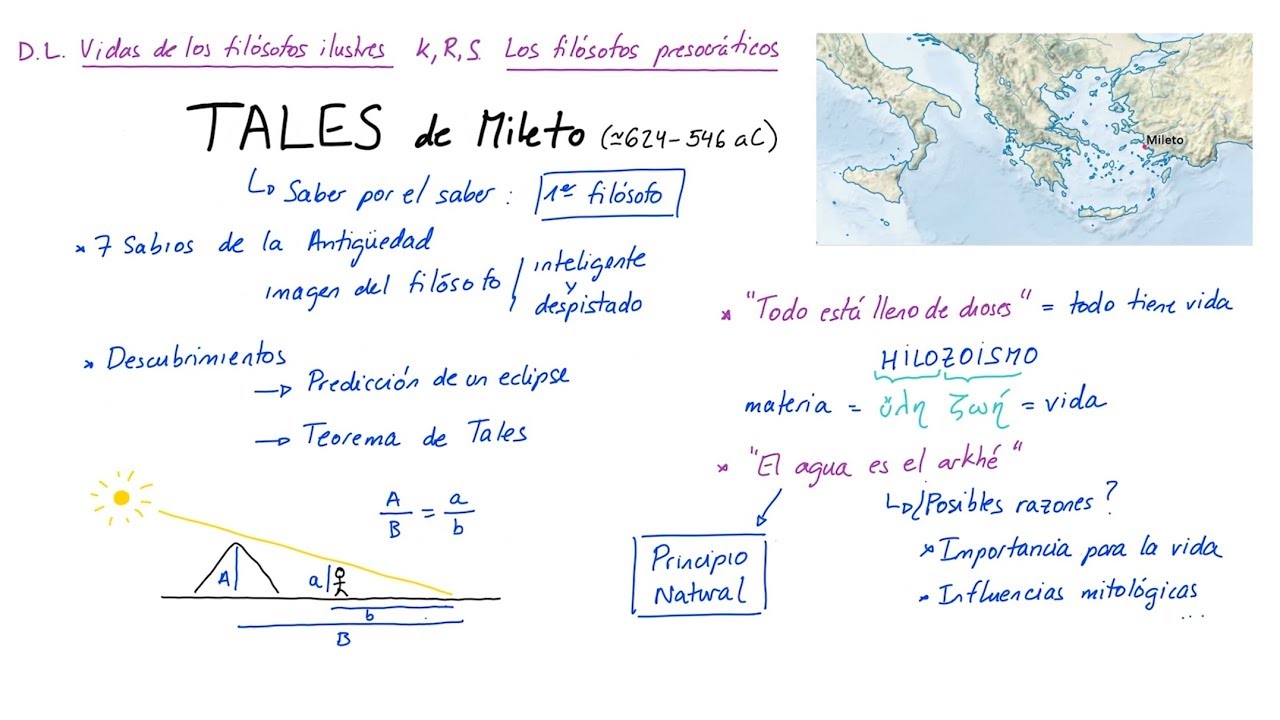 D.L. Vidas de los filósofos ilustres K, R, S. Los filósofos presocráticos
TALES de Mileto (≃624-546 aC)
↳ Saber por el saber : 1er filósofo
* 7 Sabios de la Antigüedad
imagen del filósofo / inteligente
y
despistado
* Descubrimientos
→ Predicción de un eclipse
→ Teorema de Tales
A/B = a/b
A
a
b
B
Mileto
* "Todo está lleno de dioses" = todo tiene vida
HILOZOISMO
materia = ὕλη ζωή = vida
* "El agua es el arkhé"
Principio
Natural
↳ ¿Posibles razones?
* Importancia para la vida
* Influencias mitológicas
...